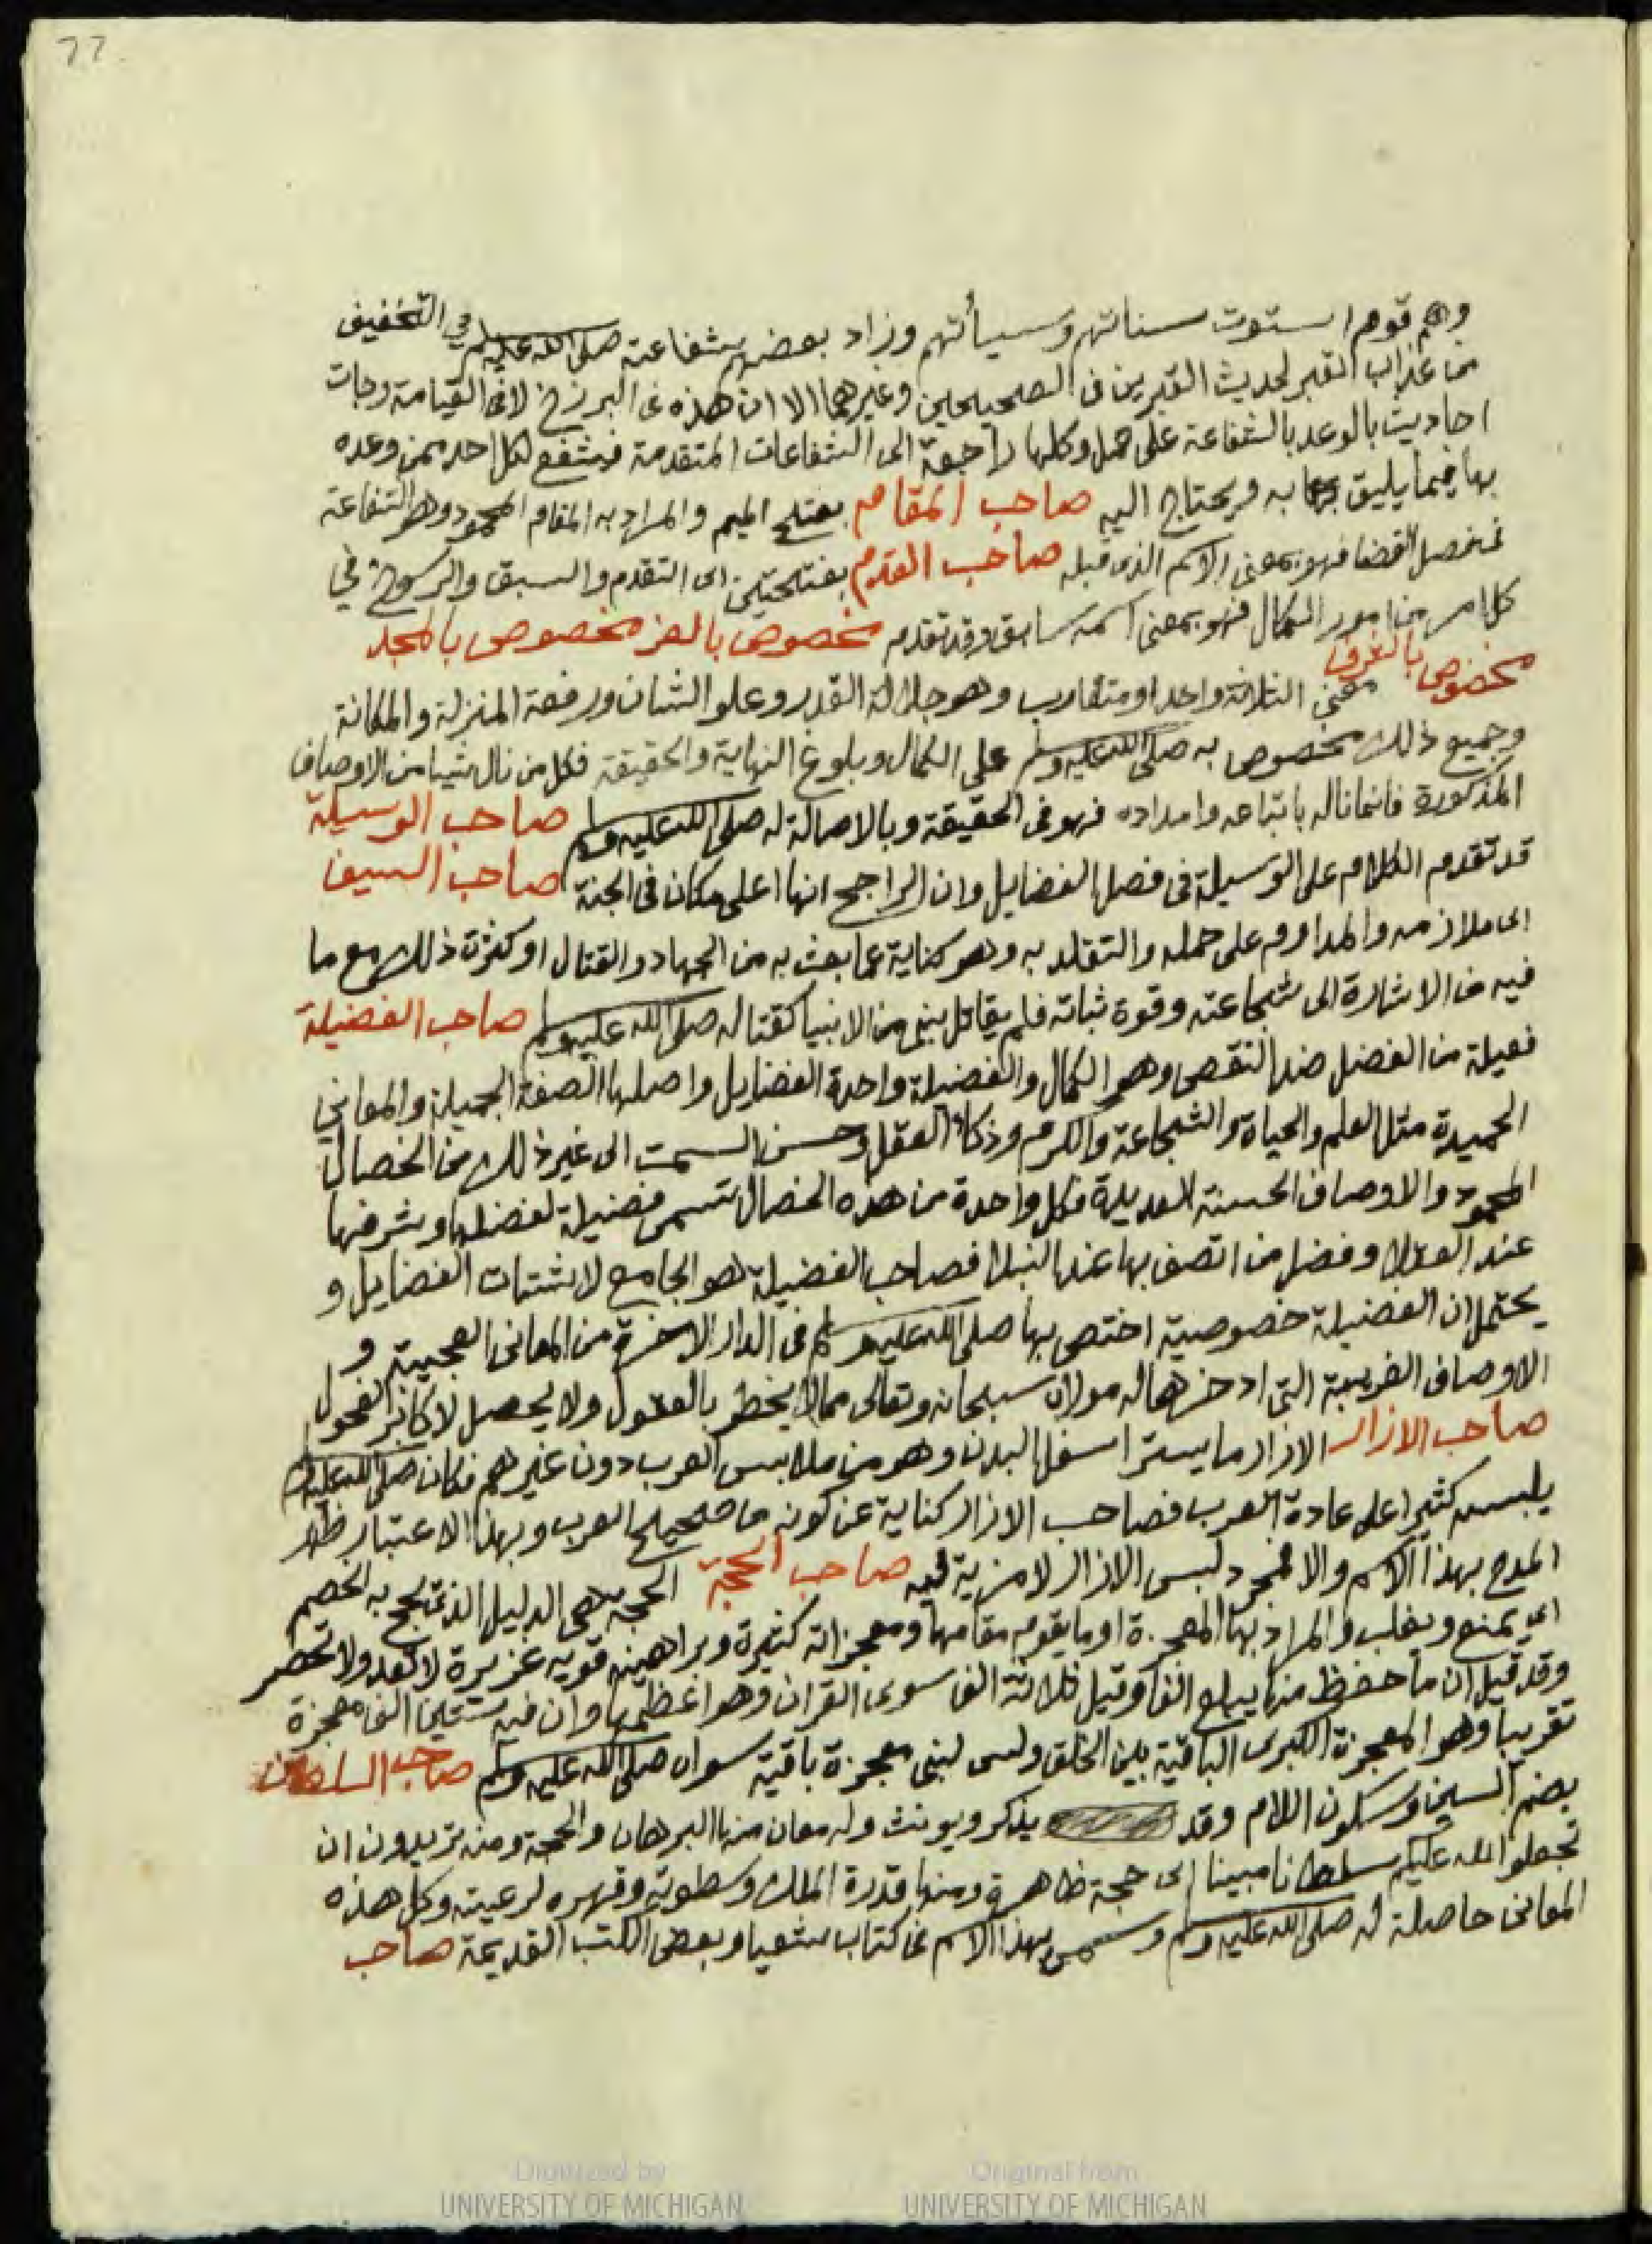 77
وهم قوم استوت سناتهم وسيأتهم وزاد بعضهم شفاعته صلى الله عليه وسلم في التخفيف
من عذاب القبر لحديث القبرين فى الصحيحين وغيرهما الا ان هذه فى البرزخ لا فى القيامة وجات
احاديث بالوعد بالشفاعة على عمل وكلها راجعة الى الشفاعات المتقدمة فيشفع لكل احد ممن وعده
بها فيما يليق به ويحتاج اليه صاحب المقام بفتح الميم والمراد به المقام المحمود وهو الشفاعة
لفصل القضا فهو بمعنى الاسم الذى قبله صاحب القدم بفتحتين اى التقدم والسبق والرسوخ في
كل امر من امور الكمال فهو بمعنى اسمه سابق وقد تقدم مخصوص بالعز مخصوص بالمجد
مخصوص بالشرف معنى الثلاثة واحد او متقارب وهو جلالة القدر وعلو الشان ورفعة المنزلة والمكانة
وجميع ذلك مخصوص به صلى الله عليه وسلم على الكمال وبلوغ النهاية والحقيقة فكل من نال شيا من الاوصاف
المذكورة فانما ناله باتباعه وامداده فهو فى الحقيقة وبالاصالة له صلى الله عليه وسلم صاحب الوسيلة
قد تقدم الكلام على الوسيلة فى فصل الفضايل وان الراجح انها اعلى مكان فى الجنة صاحب السيف
اى ملازمه والمداوم على حمله والتقلد به وهو كناية عما بعث به من الجهاد والقتال او كثرت ذلك مع ما
فيه من الاشارة الى شجاعته وقوة ثباته فلم يقاتل نبى من الانبيا كقتاله صلى الله عليه وسلم صاحب الفضيلة
فعيلة من الفضل ضد النقص وهو الكمال والفضيلة واحدة الفضايل واصلها الصفة الجميلة والمعانى
الحميدة مثل العلم والحياة والشجاعة والكرم وذكاء العقل وحسن السمت الى غير ذلك من الخصال
المحمود والاوصاف الحسنة العديلة فكل واحدة من هذه الخصال تسمى فضيلة لفضلها وشرفها
عند العقلا وفضل من اتصف بها عند النبلا فصاحب الفضيلة هو الجامع لاشتات الفضايل و
يحتمل ان الفضيلة خصوصية اختص بها صلى الله عليه وسلم فى الدار الاخرة من المعانى العجيبة و
الاوصاف الغريبة التى ادخرها له مولاه سبحانه وتعالى مما لا يخطر بالعقول ولا يحصل لاكابر الفحول
صاحب الازار الازار ما يستر اسفل البدن وهو من ملابس العرب دون غيرهم فكان صلى الله عليه وسلم
يلبسه كثيرا على عادة العرب فصاحب الازار كناية عن كونه من صحيح العرب وبهذا الاعتبار ظهر
المدح بهذا الاسم والا فمجرد لبس الازار لا مزية فيه صاحب الحجة الحجة هى الدليل الذى تحتج به الخصم
اى يمنع ويغلب والمراد بها المعجزة او ما يقوم مقامها ومعجزاته كثيرة وبراهينه قويه غزيرة لا تعد ولا تحصر
وقد قيل ان ما حفظ منها يبلغ الفا وقيل ثلاثة الف سوى القران وهو اعظمها وان فيه ستين الف معجزة
تقريبا وهو المعجزة الكبرى الباقية بين الخلق وليس لنبى معجزة باقية سواه صلى الله عليه وسلم صاحب السلطان
بضم السين وسكون اللام وقد يذكر ويونث وله معان منها البرهان والحجة ومنه تريدون ان
تجعلو الله عليكم سلطانا مبينا اى حجة ظاهرة ومنها قدرة الملك وسطوته وقهره لرعيته وكل هذه
المعانى حاصلة له صلى الله عليه وسلم وسمى بهذا الاسم فى كتاب شعيا وبعض الكتب القديمة صاحب
Digitized by
UNIVERSITY OF MICHIGAN
Original from
UNIVERSITY OF MICHIGAN